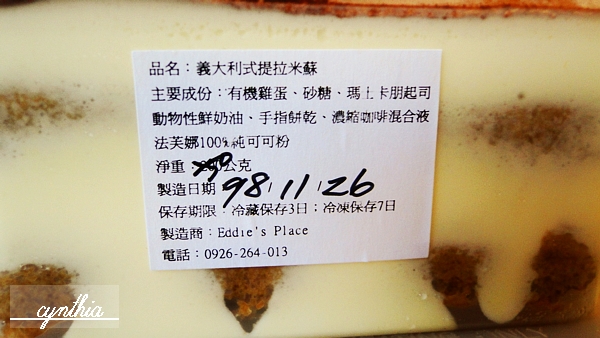 品名：義大利式提拉米蘇
主要成份：有機雞蛋、砂糖、瑪上卡朋起司
動物性鮮奶油、手指餅乾、濃縮咖啡混合液
法芙娜100%純可可粉
淨重：公克
製造日期 98/11/26
保存期限：冷藏保存3日；冷凍保存7日
製造商：Eddie's Place
電話：0926-264-013
cynthia